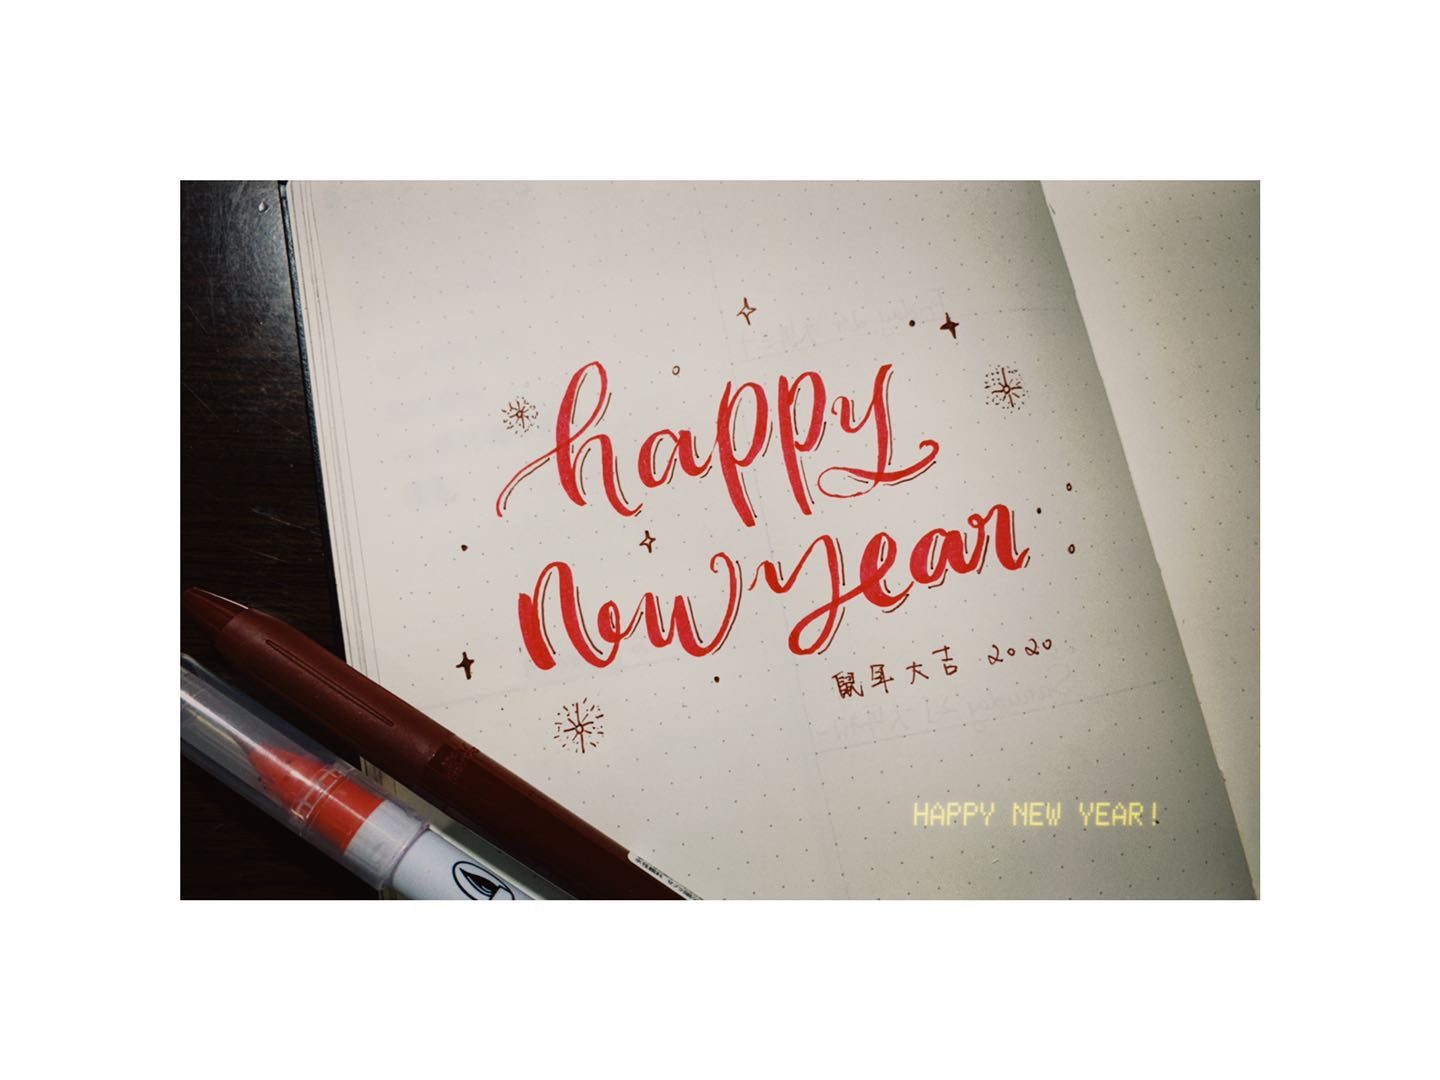 happy
New year
鼠年大吉 2020
HAPPY NEW YEAR!